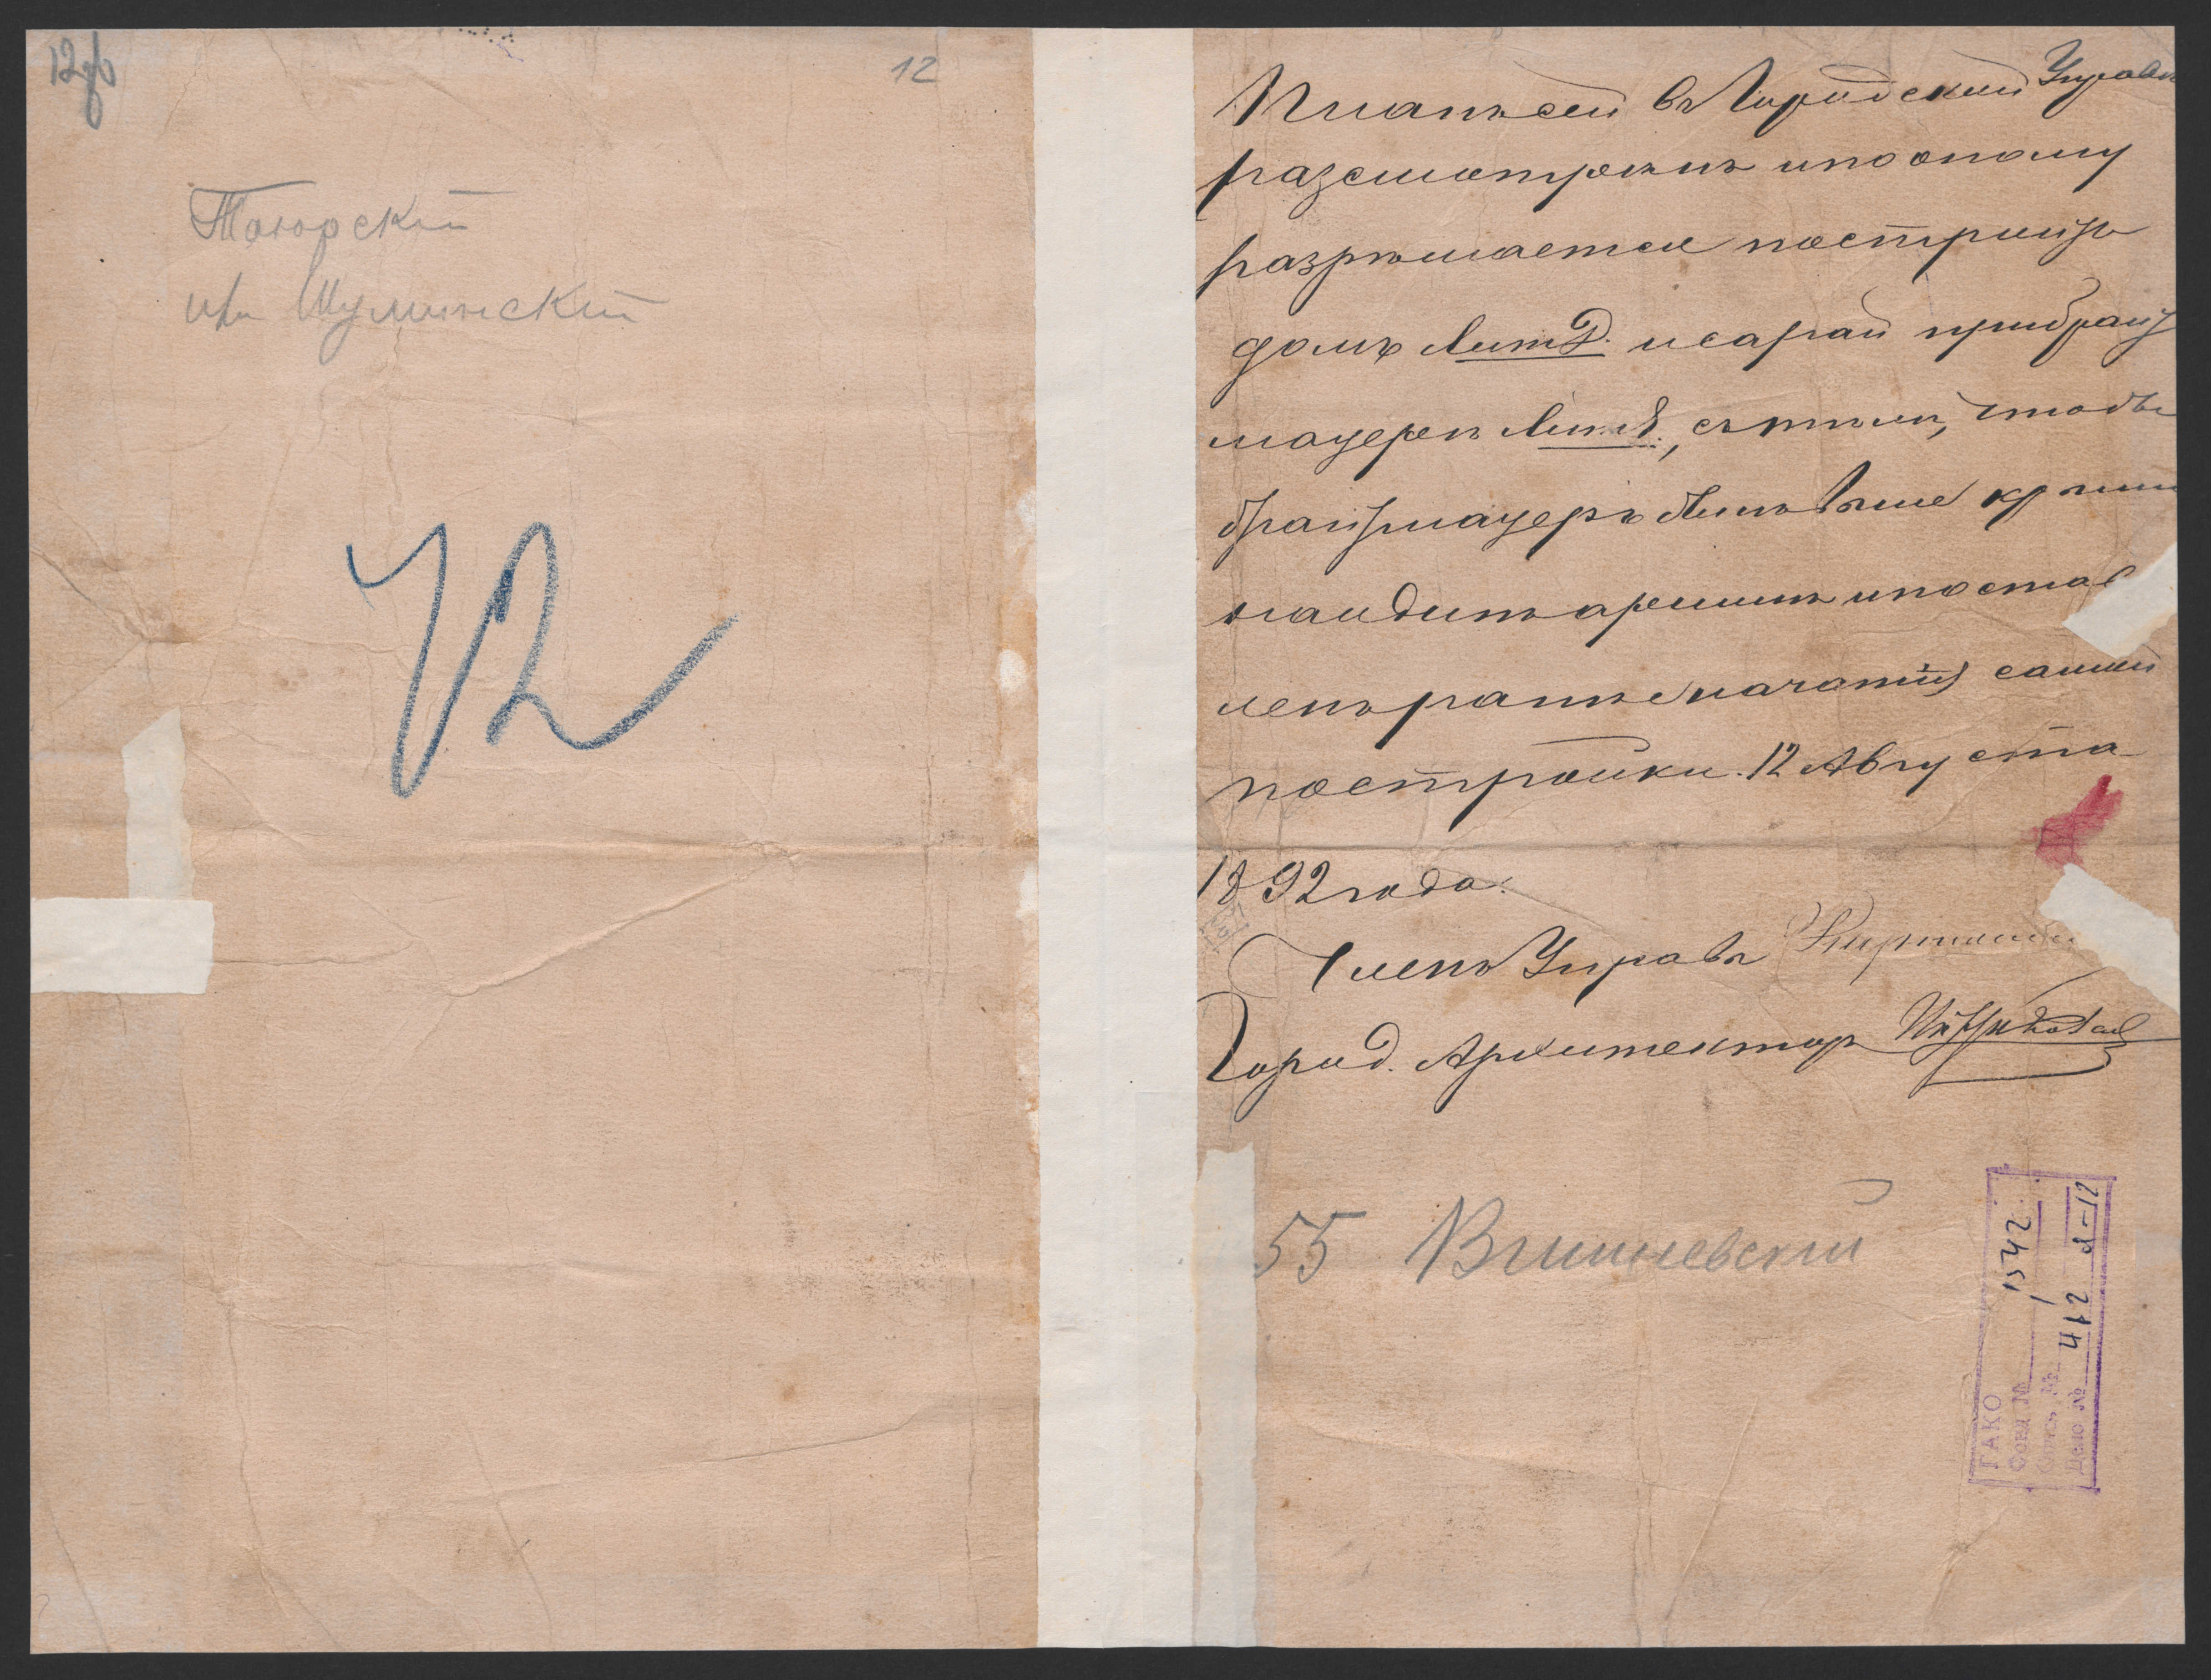 12об
12
Таторский
или Шуминский
12
Планъ сей въ Городской Управѣ
разсмотренъ и по оному
разрѣшается построить
домъ Лит Д. и сарай при бранд
мауере Лит. , съ тѣмъ, чтобы
брандмауеръ былъ выше крыши
на одинъ аршинъ и постав
ленъ ранѣе начатія самой
постройки. 12 Августа
1892 года.
Членъ Управы
Город. Архитекторъ
55 Вишневский
ГАКО
Фонд № 1542
Опись № 1
Дело № 412 л-12